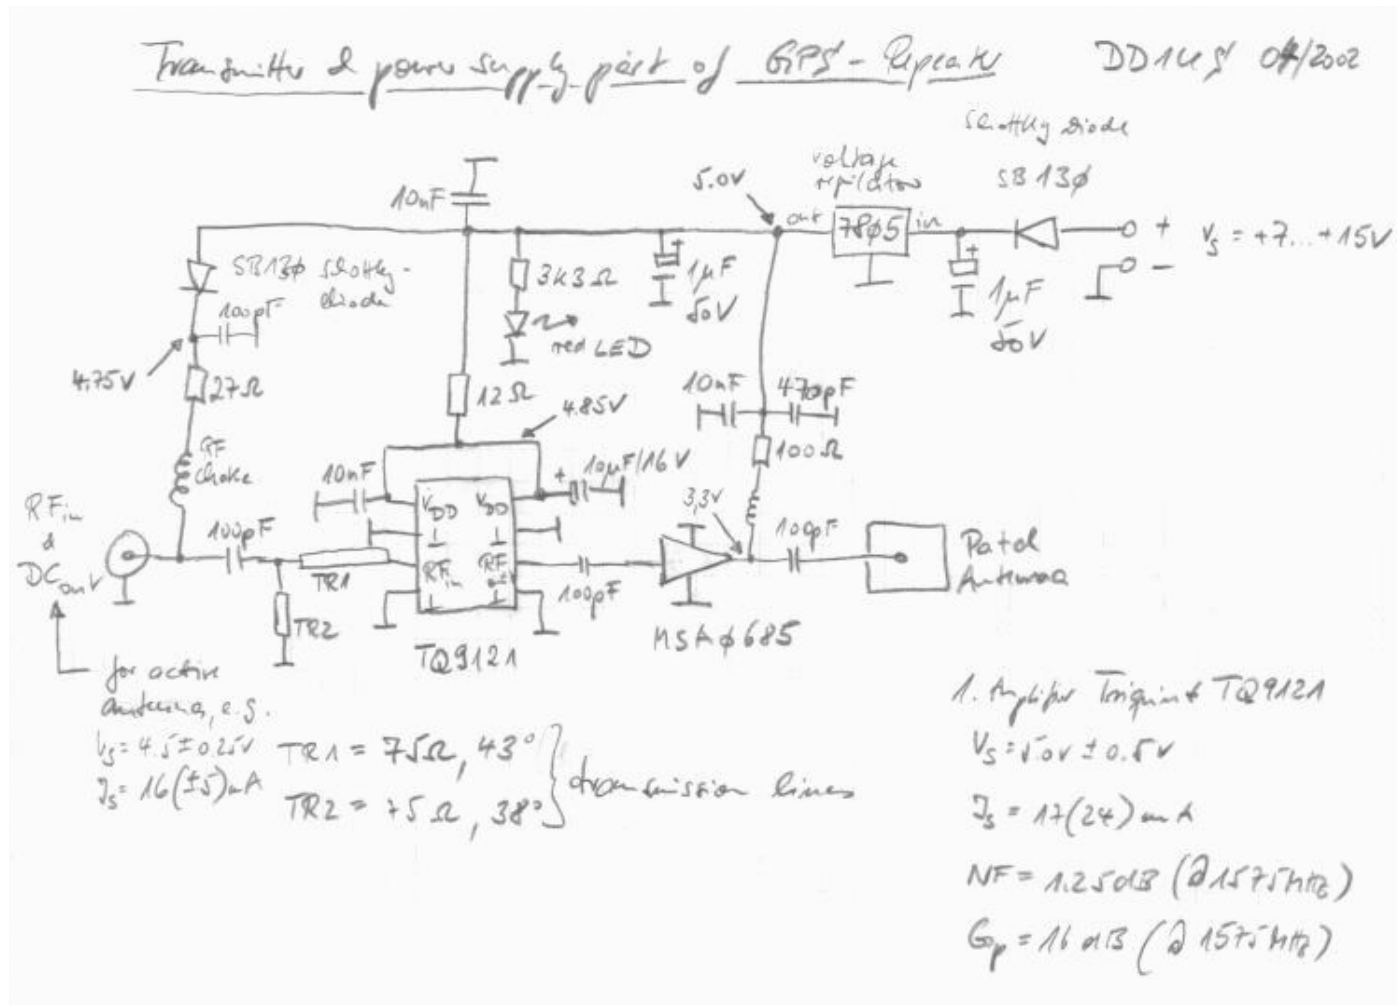 Transmitter & power supply part of GPS-Repeater DD1US 04/2002
Schottky Diode
SB13ϕ
voltage
regulator
5.0V
out
78ϕ5
in
+
Vs = +7...+15V
-
+
1µF
50V
10nF
SB13ϕ Schottky-
diode
100pF
4.75V
27Ω
RF
choke
3k3Ω
red LED
+
1µF
50V
12Ω
4.85V
10nF
+
10µF/16V
10nF
470pF
100Ω
3,3V
RFin
&
DCout
100pF
TR1
TR2
VDD
VDD
RFin
RFout
TQ9121
100pF
MSAϕ685
100pF
Patch
Antenna
for active
antenna, e.g.
Vs = 4.5±0.25V
Is = 16(±5)mA
TR1 = 75Ω, 43°
TR2 = 75Ω, 38°
transmission lines
1. Amplifier Triquint TQ9121
Vs = 5.0V ± 0.5V
Is = 17(24)mA
NF = 1.25dB (@1575MHz)
Gp = 16dB (@1575MHz)